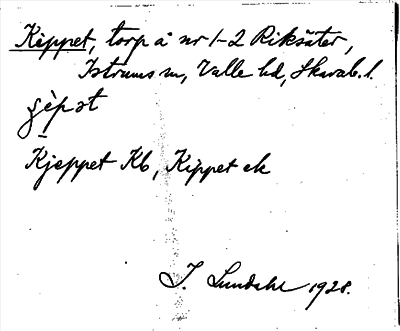 Käppet, torp å nr 1-2 Riksäter,
Istrums sn, Valle hd, Skarab. l.
Kjeppet Kb, Käppet ek
I. Lundahl 1928.